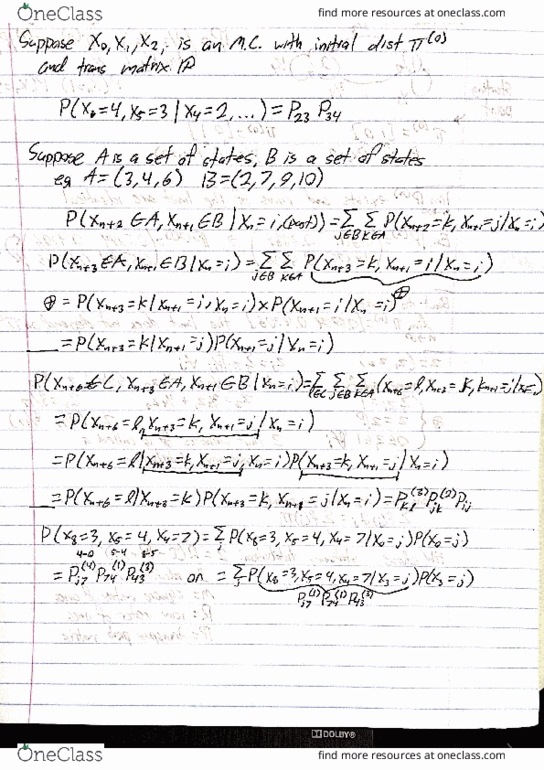 OneClass
find more resources at oneclass.com
Suppose X₀, X₁, X₂, is an M.C. with initial dist π⁽⁰⁾
and trans matrix P
P(X₆=4, X₅=3 | X₄=2, ...) = P₂₃ P₃₄
Suppose A is a set of states, B is a set of states
eg A = (3,4,6) B = (2,7,9,10)
P(Xₙ₊₂ ∈ A, Xₙ₊₁ ∈ B | Xₙ = i, (past)) = Σ_{j∈B} Σ_{k∈A} P(Xₙ₊₂ = k, Xₙ₊₁ = j | Xₙ = i)
P(Xₙ₊₃ ∈ A, Xₙ₊₁ ∈ B | Xₙ = i) = Σ_{j∈B} Σ_{k∈A} P(Xₙ₊₃ = k, Xₙ₊₁ = j | Xₙ = i)
⊕ = P(Xₙ₊₃ = k | Xₙ₊₁ = i, Xₙ = i) × P(Xₙ₊₁ = i | Xₙ = i) ⊕
= P(Xₙ₊₃ = k | Xₙ₊₁ = j) P(Xₙ₊₁ = j | Xₙ = i)
P(Xₙ₊₆ ∈ C, Xₙ₊₃ ∈ A, Xₙ₊₁ ∈ B | Xₙ = i) = Σ_{l∈C} Σ_{j∈B} Σ_{k∈A} (Xₙ₊₆ = l, Xₙ₊₃ = k, Xₙ₊₁ = j |
= P(Xₙ₊₆ = l, Xₙ₊₃ = k, Xₙ₊₁ = j | Xₙ = i)
= P(Xₙ₊₆ = l | Xₙ₊₃ = k, Xₙ₊₁ = j, Xₙ = i) P(Xₙ₊₃ = k, Xₙ₊₁ = j | Xₙ = i)
= P(Xₙ₊₆ = l | Xₙ₊₃ = k) P(Xₙ₊₃ = k, Xₙ₊₁ = j | Xₙ = i) = P_{kl}⁽³⁾ P_{jk}⁽²⁾ P_{ij}
P(X₈=3, X₅=4, X₄=7) = Σ_j P(X₈=3, X₅=4, X₄=7 | X₀=j) P(X₀=j)
4-0 5-4 8-5
= P_{j7}⁽⁴⁾ P₇₄⁽¹⁾ P₄₃⁽³⁾ or = Σ P(X₈=3, X₅=4, X₄=7 | X₃=j) P(X₃=j)
P_{j7}⁽¹⁾ P₇₄⁽¹⁾ P₄₃⁽³⁾
DOLBY
OneClass
find more resources at oneclass.com